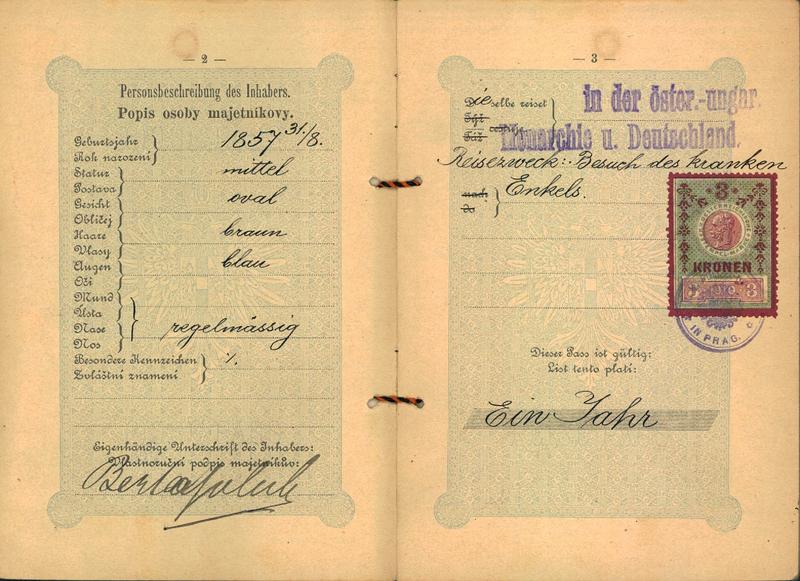 — 2 —
Personsbeschreibung des Inhabers.
Popis osoby majetníkovy.
Geburtsjahr
Rok narození
1857 31./8.
Statur
Postava
mittel
Gesicht
Obličej
oval
Haare
Vlasy
braun
Augen
Oči
blau
Mund
Ústa
Nase
Nos
regelmässig
Besondere Kennzeichen
Zvláštní znamení
./.
Eigenhändige Unterschrift des Inhabers:
Vlastnoruční podpis majetníkův:
Berta
— 3 —
Dieselbe reiset
in der öster.-ungar.
Monarchie u. Deutschland.
Reisezweck: Besuch des kranken
Enkels.
nach
do
3
KRONEN
3
IN PRAG.
Dieser Pass ist gültig:
List tento platí:
Ein Jahr